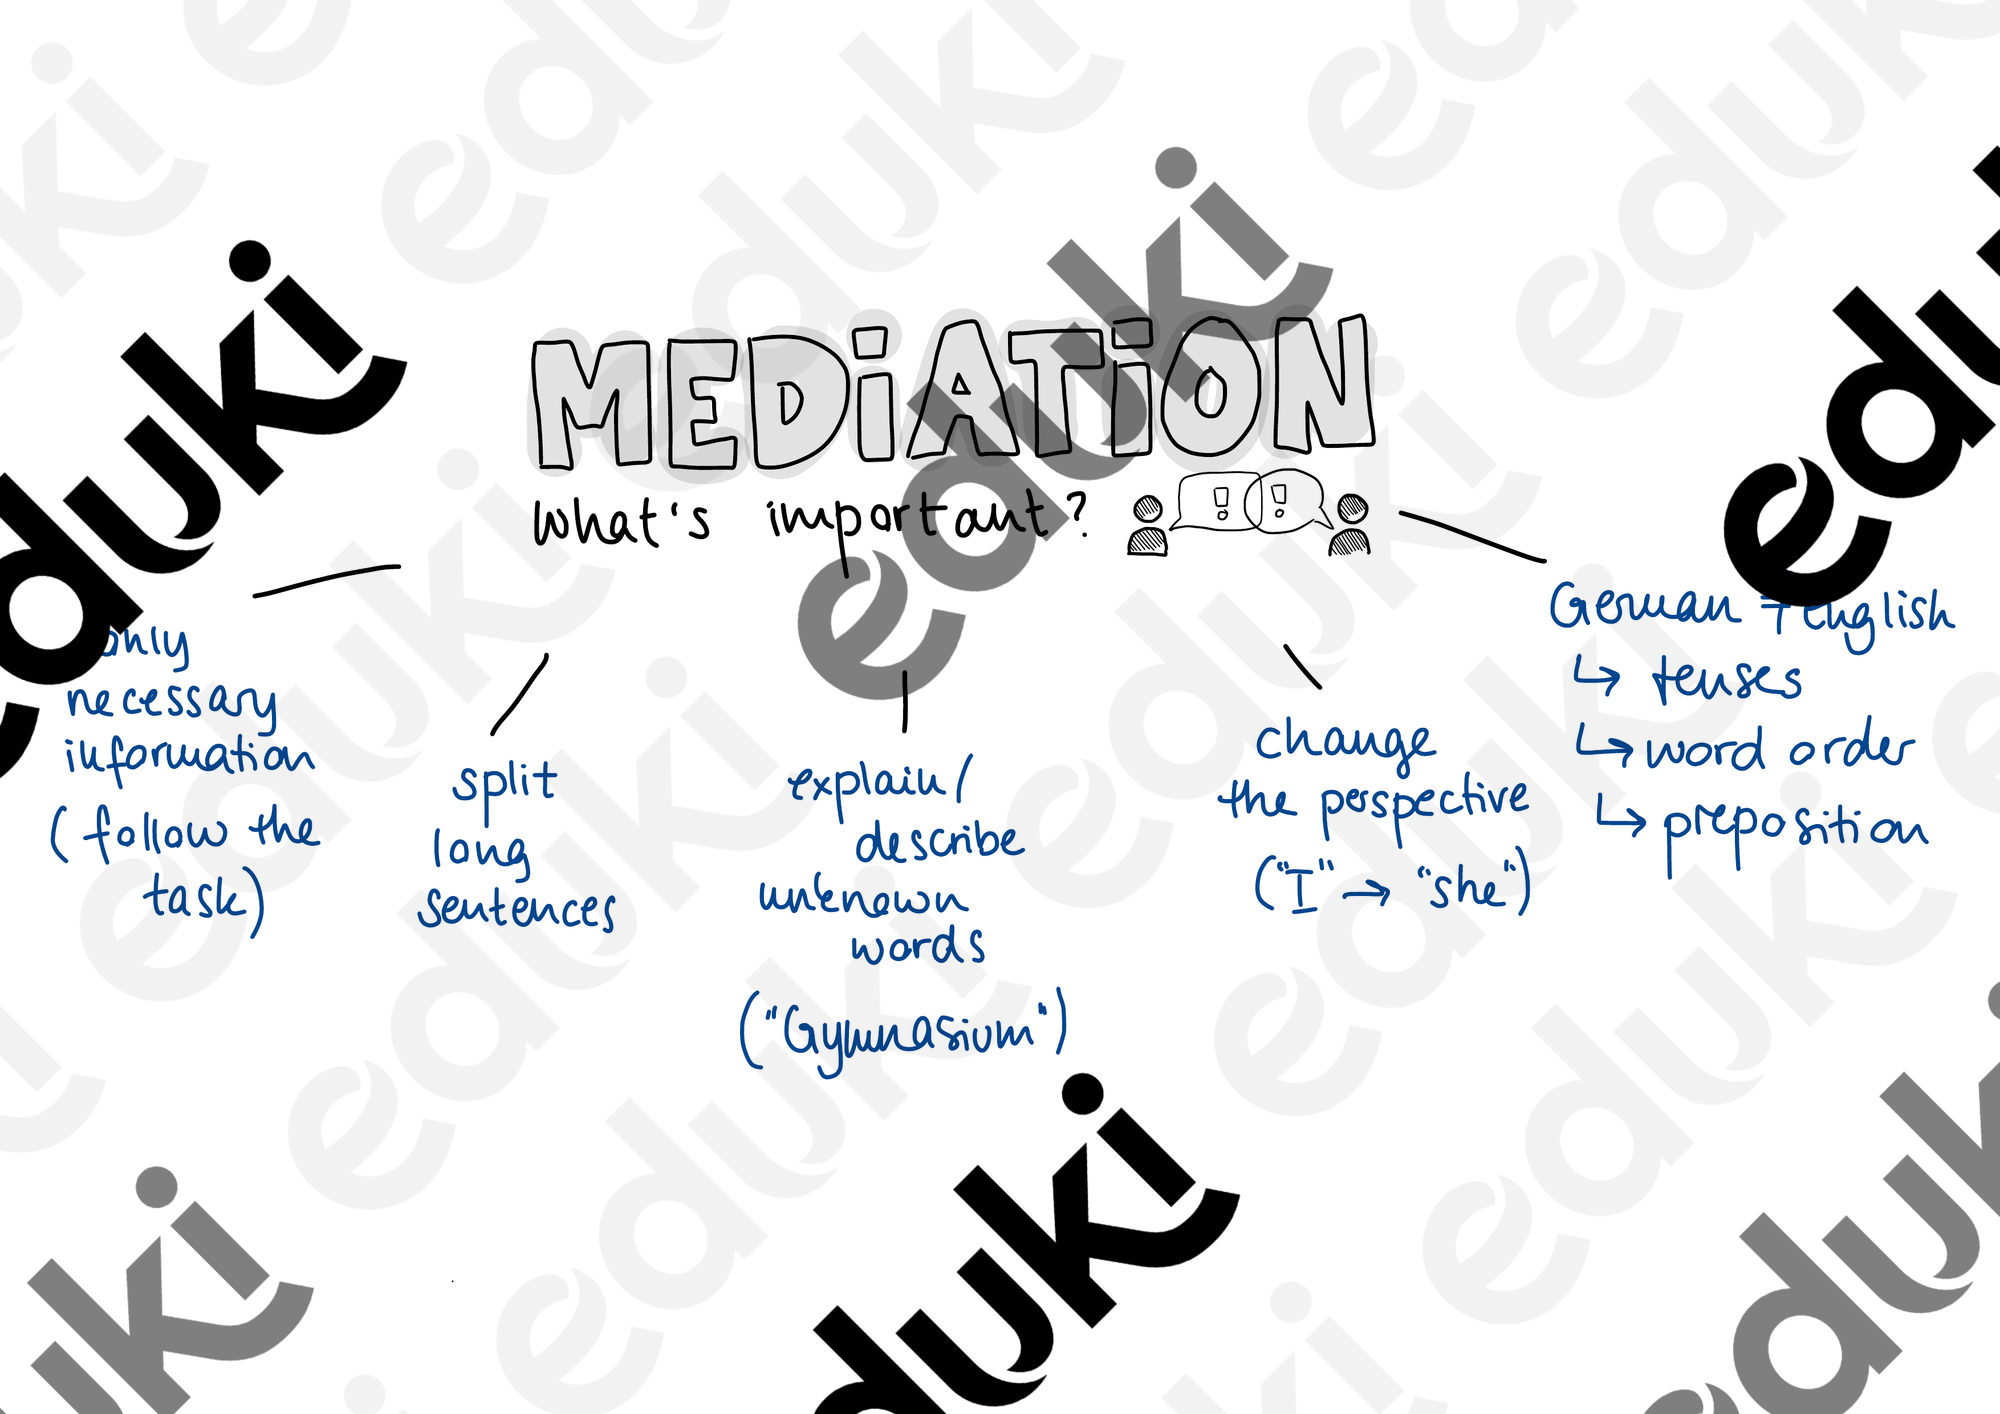 MEDiATiON
what's important?
! !
only
necessary
information
(follow the
task)
split
long
sentences
explain/
describe
unknown
words
("Gymnasium")
change
the perspective
("I" → "she")
German ≠ English
↳ tenses
↳ word order
↳ preposition
eduki